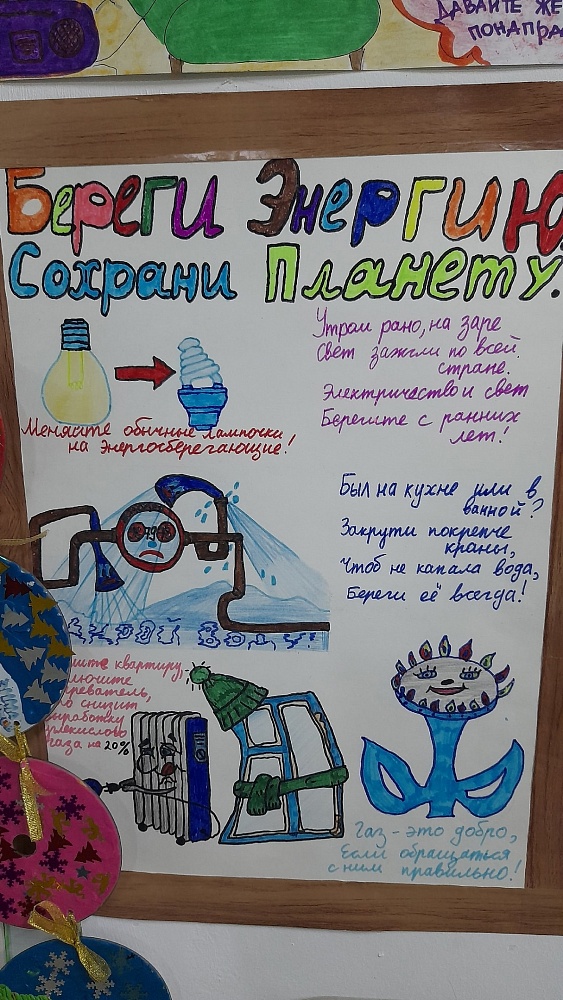 ДАВАЙТЕ ЖЕ
ПОНАПРА
Береги Энергию
Сохрани Планету.
Утром рано, на заре
Свет зажгли по всей
стране.
Электричество и свет
Берегите с ранних
лет!
Меняйте обычные лампочки
на энергосберегающие!
Был на кухне или в
ванной?
Закрути покрепче
краны,
Чтоб не капала вода,
Береги её всегда!
квартиру,
20%
Газ - это добро,
Если обращаться
с ним правильно!